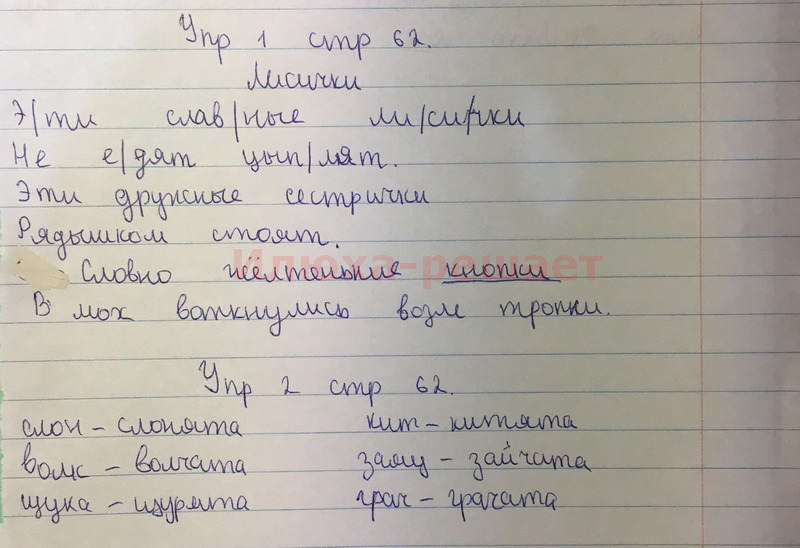 Упр 1 стр 62.
Лисички
Э/ти слав/ные ли/си/чки
Не е/дят цып/лят.
Эти дружные сестрички
Рядышком стоят.
Илюха-решает
Словно жёлтенькие кнопки
В мох воткнулись возле тропки.
Упр 2 стр 62.
слон – слонята кит – китята
волк – волчата заяц – зайчата
щука – щурята грач – грачата